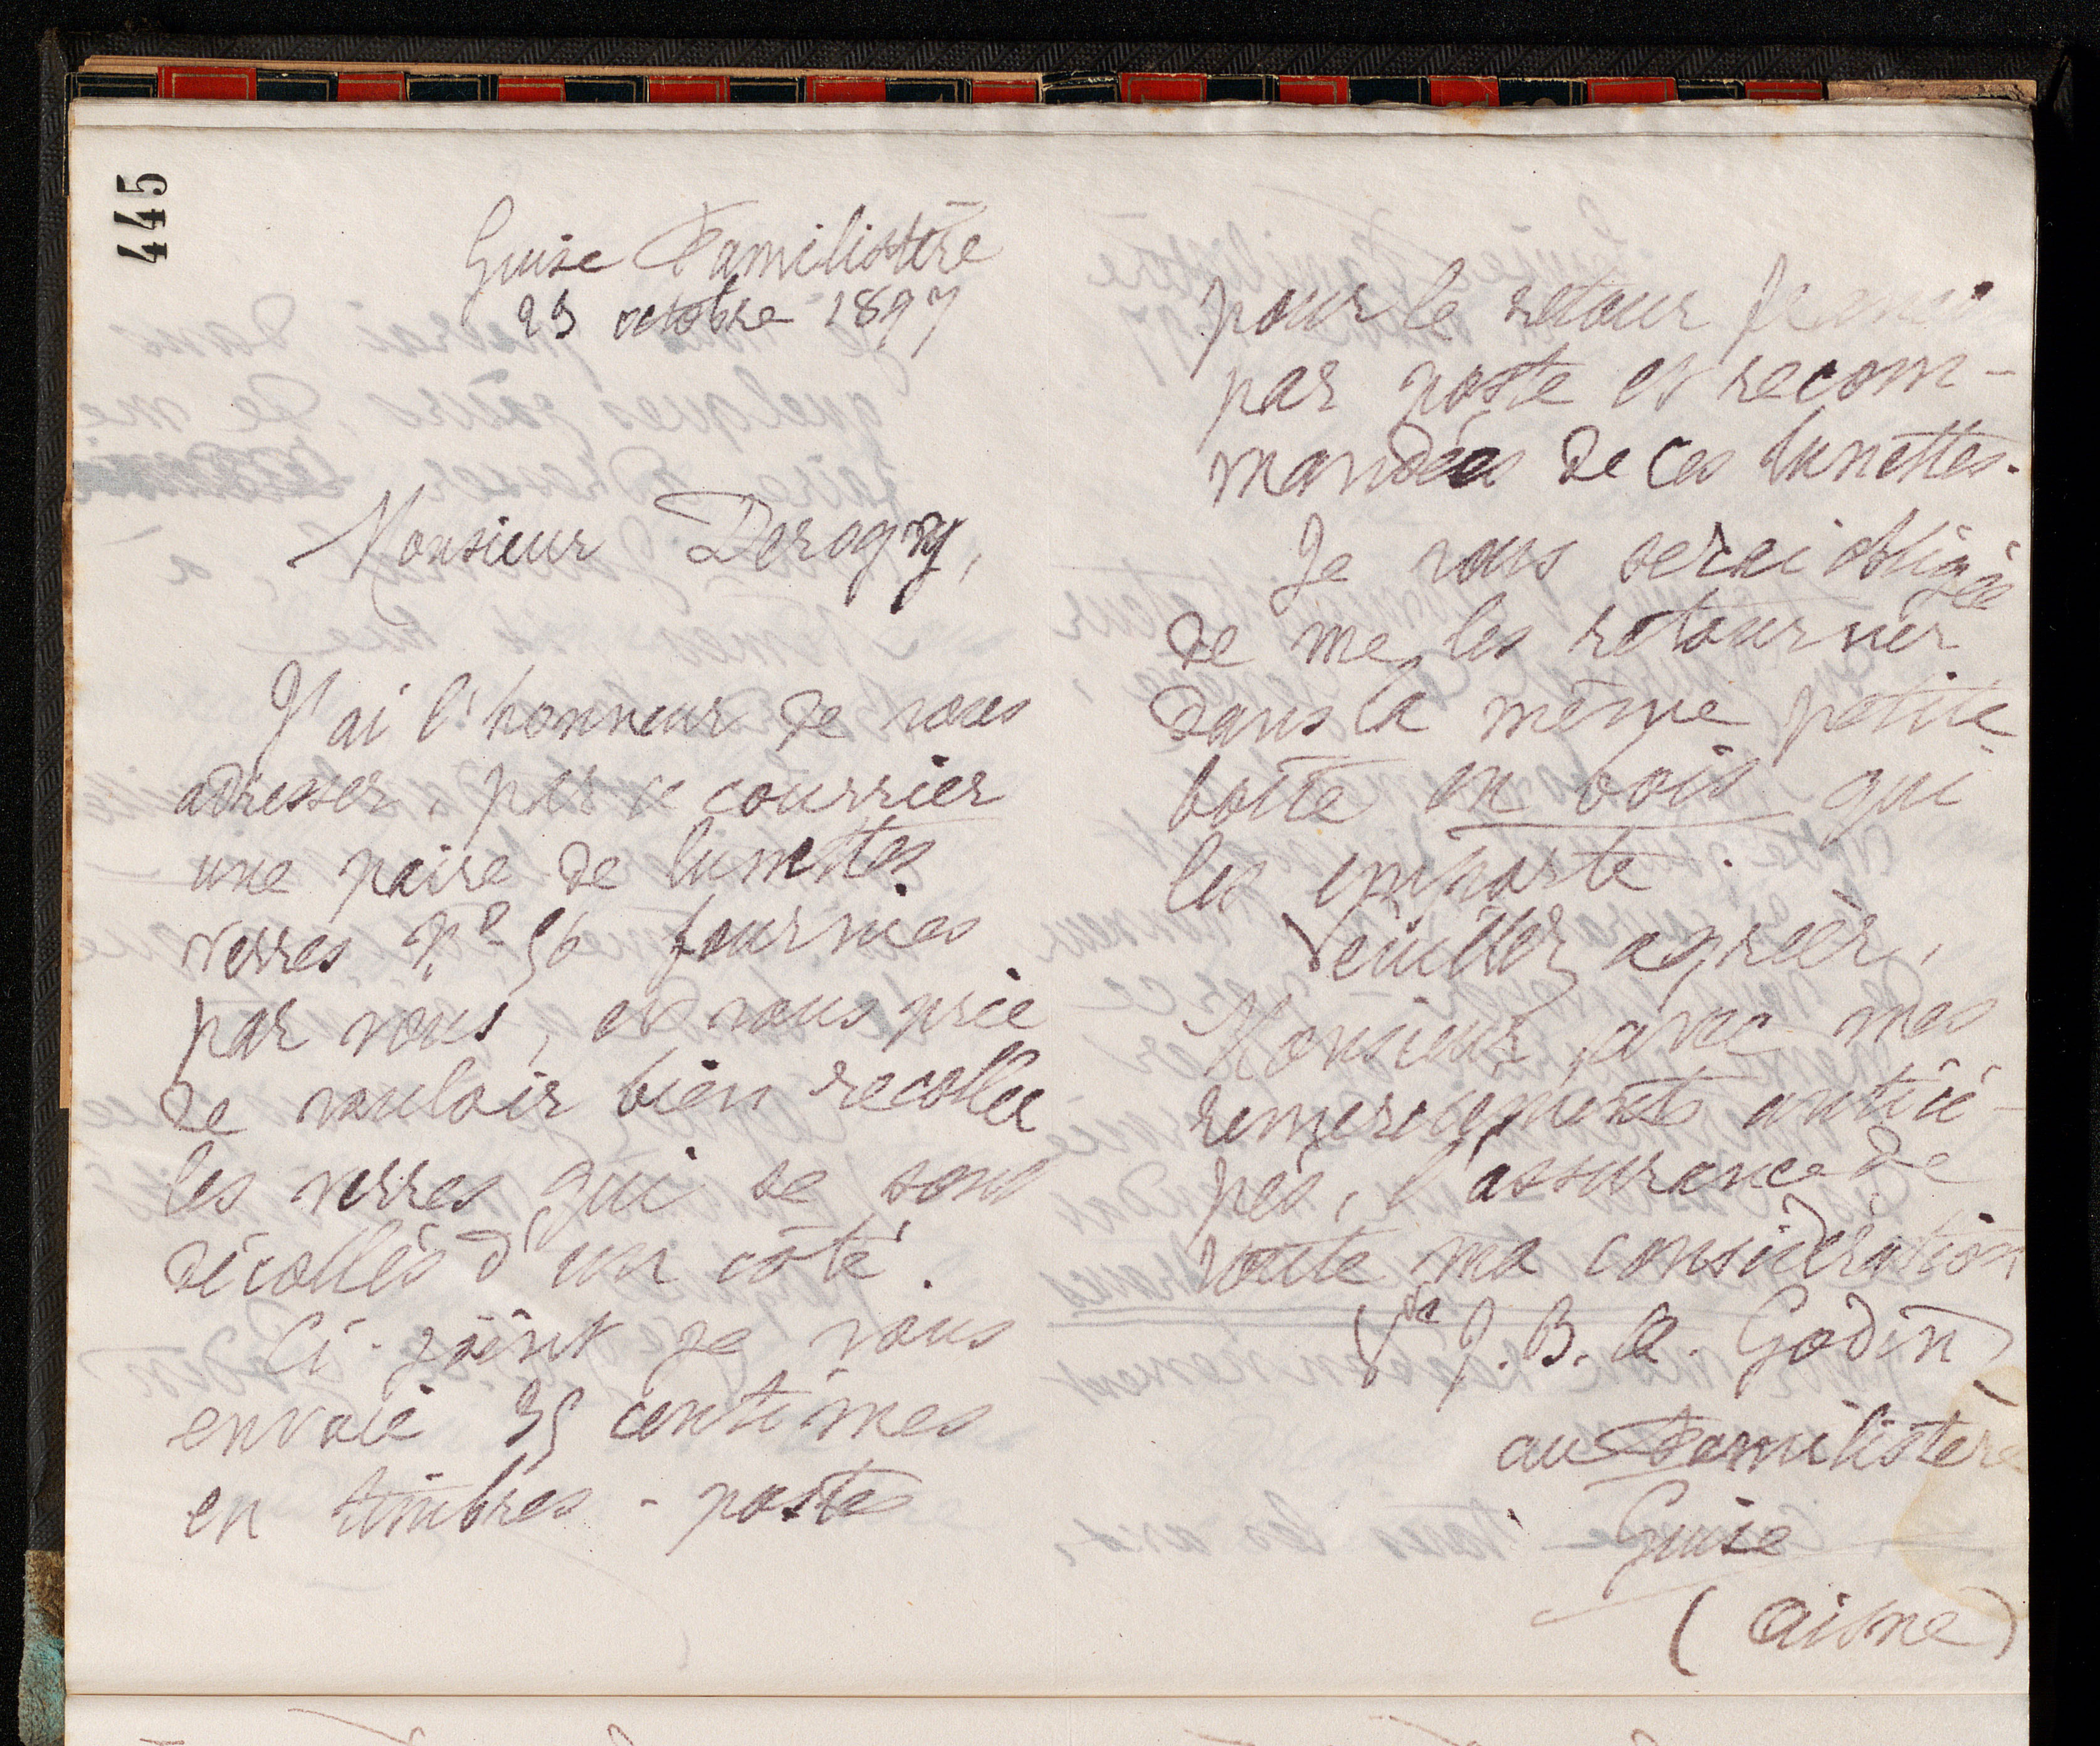 445
Guise Familistère
23 octobre 1897
Monsieur Derogy,
J'ai l'honneur de vous
adresser, par ce courrier
une paire de lunettes
verres Nº 56 fournies
par vous, et vous prie
de vouloir bien recoller
les verres qui se sont
décollés d'un côté.
Ci-joint je vous
envoie 35 centimes
en timbres-postes
pour le retour
par poste et recom-
mandées de ces lunettes.
Je vous serai obligée
de me les retourner
dans la même petite
boîte en bois qui
les emporte.
Veuillez agréer,
Monsieur, avec mes
remerciements antici-
pés, l'assurance de
toute ma considération
Vve J. B. A. Godin
au Familistère
Guise
(Aisne)